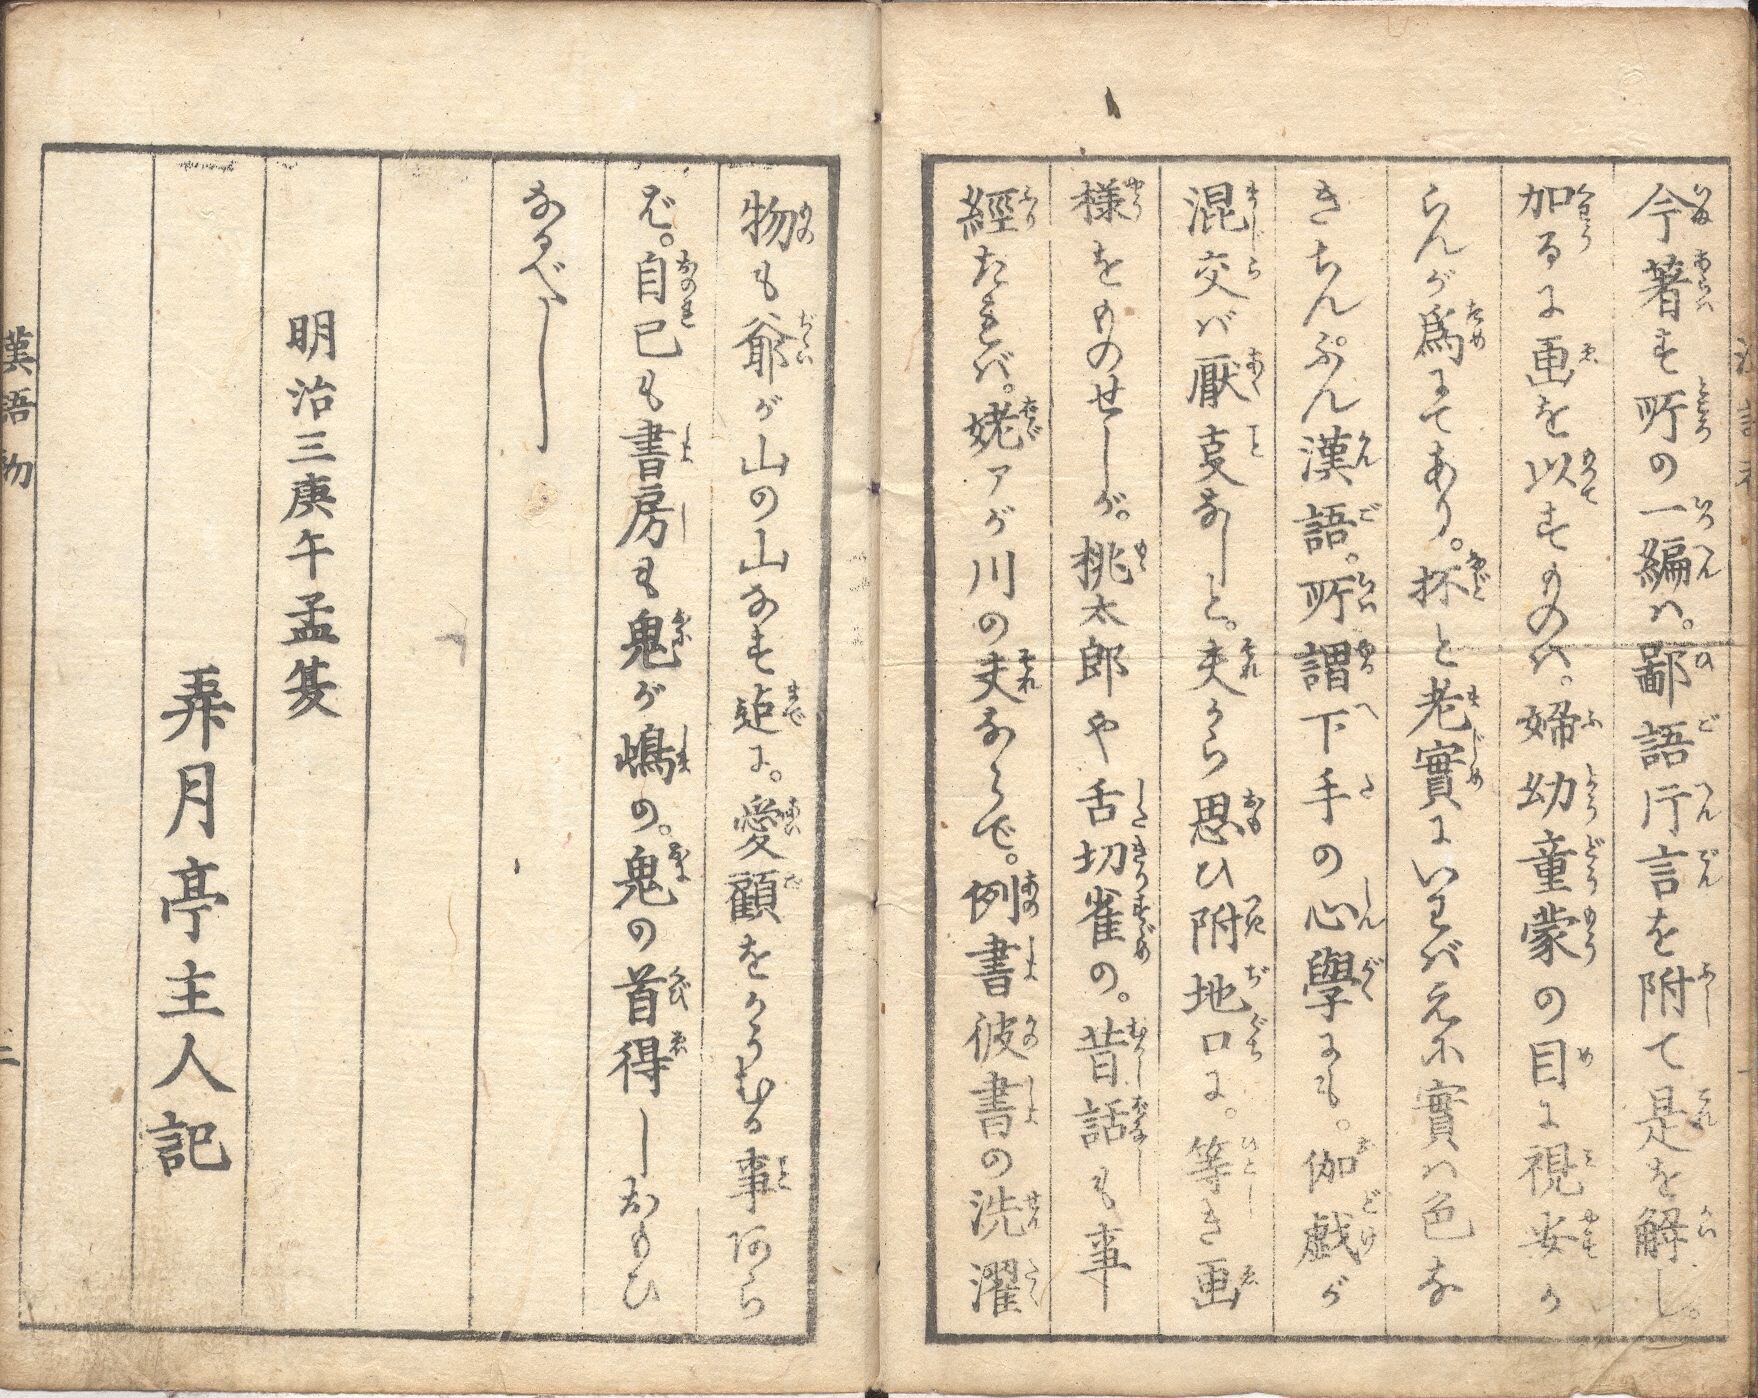 今著す所の一編ハ。鄙語片言を附て是を解し。
加るに画を以すものハ。婦幼童蒙の目に視安か
らんが為にてあり。抔と老實にいへばえに實ハ色な
きちんぷん漢語。所謂下手の心學にも。伽戯が
混交バ厭叓なしと。夫から思ひ附地口に。等き画
様をものせしが。桃太郎や舌切雀の。昔話も事
經たれバ。姥アが川の夫ならで。例書彼書の洗濯
物も爺が山の山なす迠に。愛顧をかうむる事阿ら
バ。自己も書房も鬼が嶋の。鬼の首得しおもひ
なるべし
明治三庚午孟夏
弄月亭主人記
漢語物
二